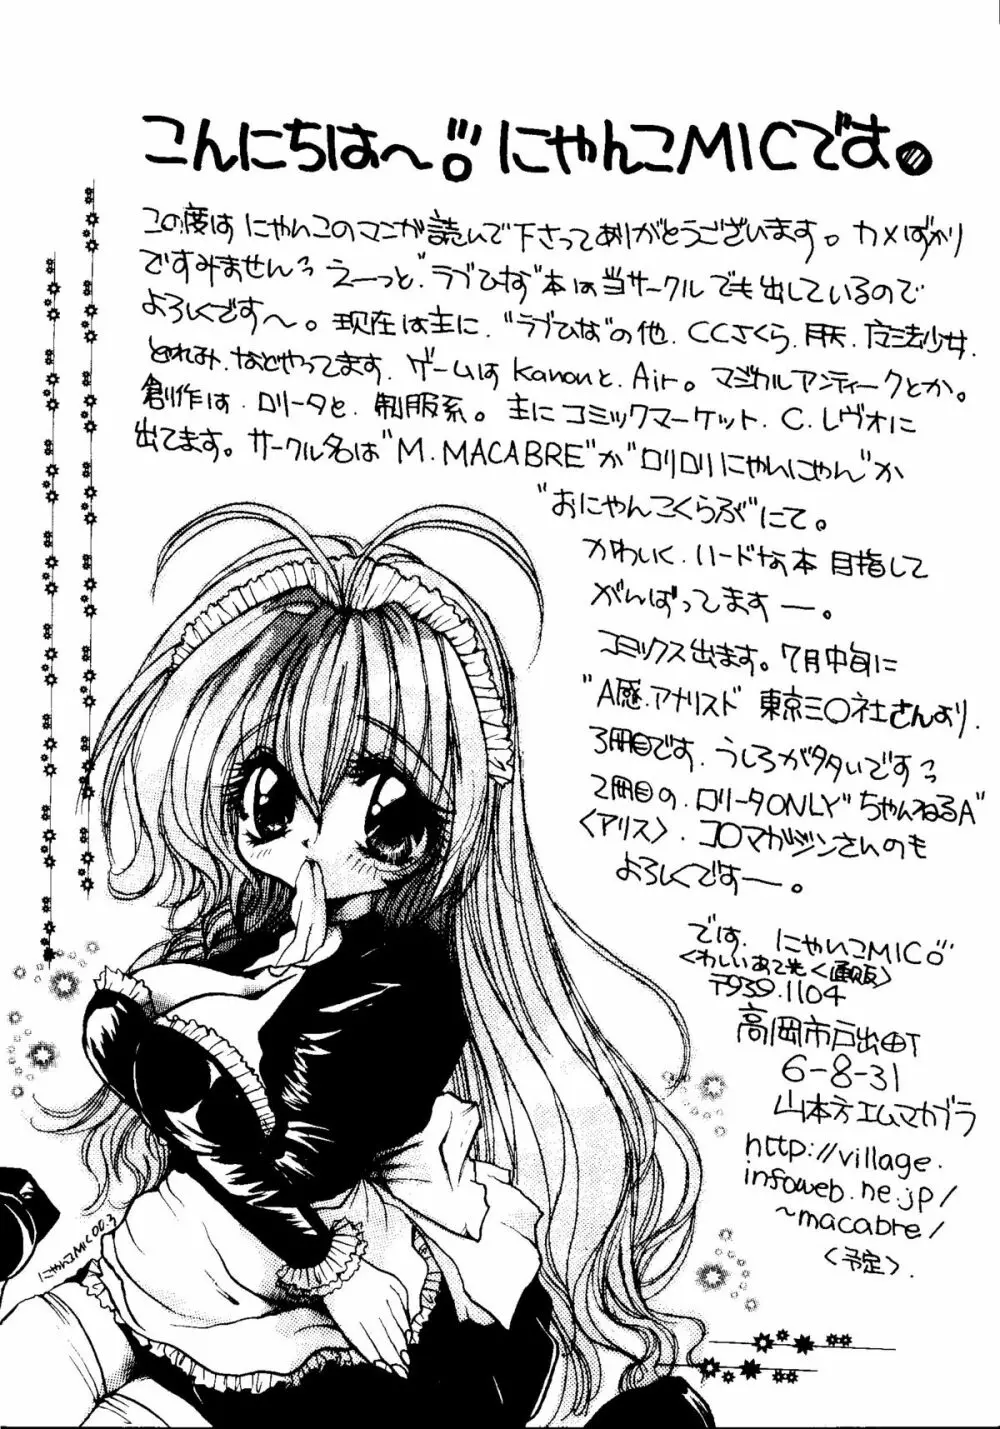 こんにちは〜!!。にゃんこMICです。
この度は にゃんこのマンガ読んで下さってありがとうございます。カメばかり
ですみませんっ えーっと、"ラブひな"本は当サークルでも出しているので
よろしくです〜。現在は主に、"ラブひな"の他、CCさくら、月天、魔法少女、
どれみ、などやってます。ゲームは Kanonと、Air。マジカルアンティークとか。
創作は、ロリータと、制服系。主にコミックマーケット、C.レヴォに
出てます。サークル名は"M.MACABRE"か"ロリロリにゃんにゃん"か
"おにゃんこくらぶ"にて。
かわいく、ハードな本 目指して
がんばってますー。
コミックス出ます。7月中旬に
"A感.アナリスト" 東京三〇社さんより。
3冊目です。うしろが多いですっ
2冊目の、ロリータONLY"ちゃんねるA"
〈アリス〉、コロマガジンさんのも
よろしくですー。
です。にゃんこMIC
〈わしいあて先〈通販〉
〒939.1104
高岡市戸出町
6-8-31
山本方エムマカブラ
http://village.
infoweb.ne.jp/
~macabre/
〈予定〉.
にゃんこMIC 00.3